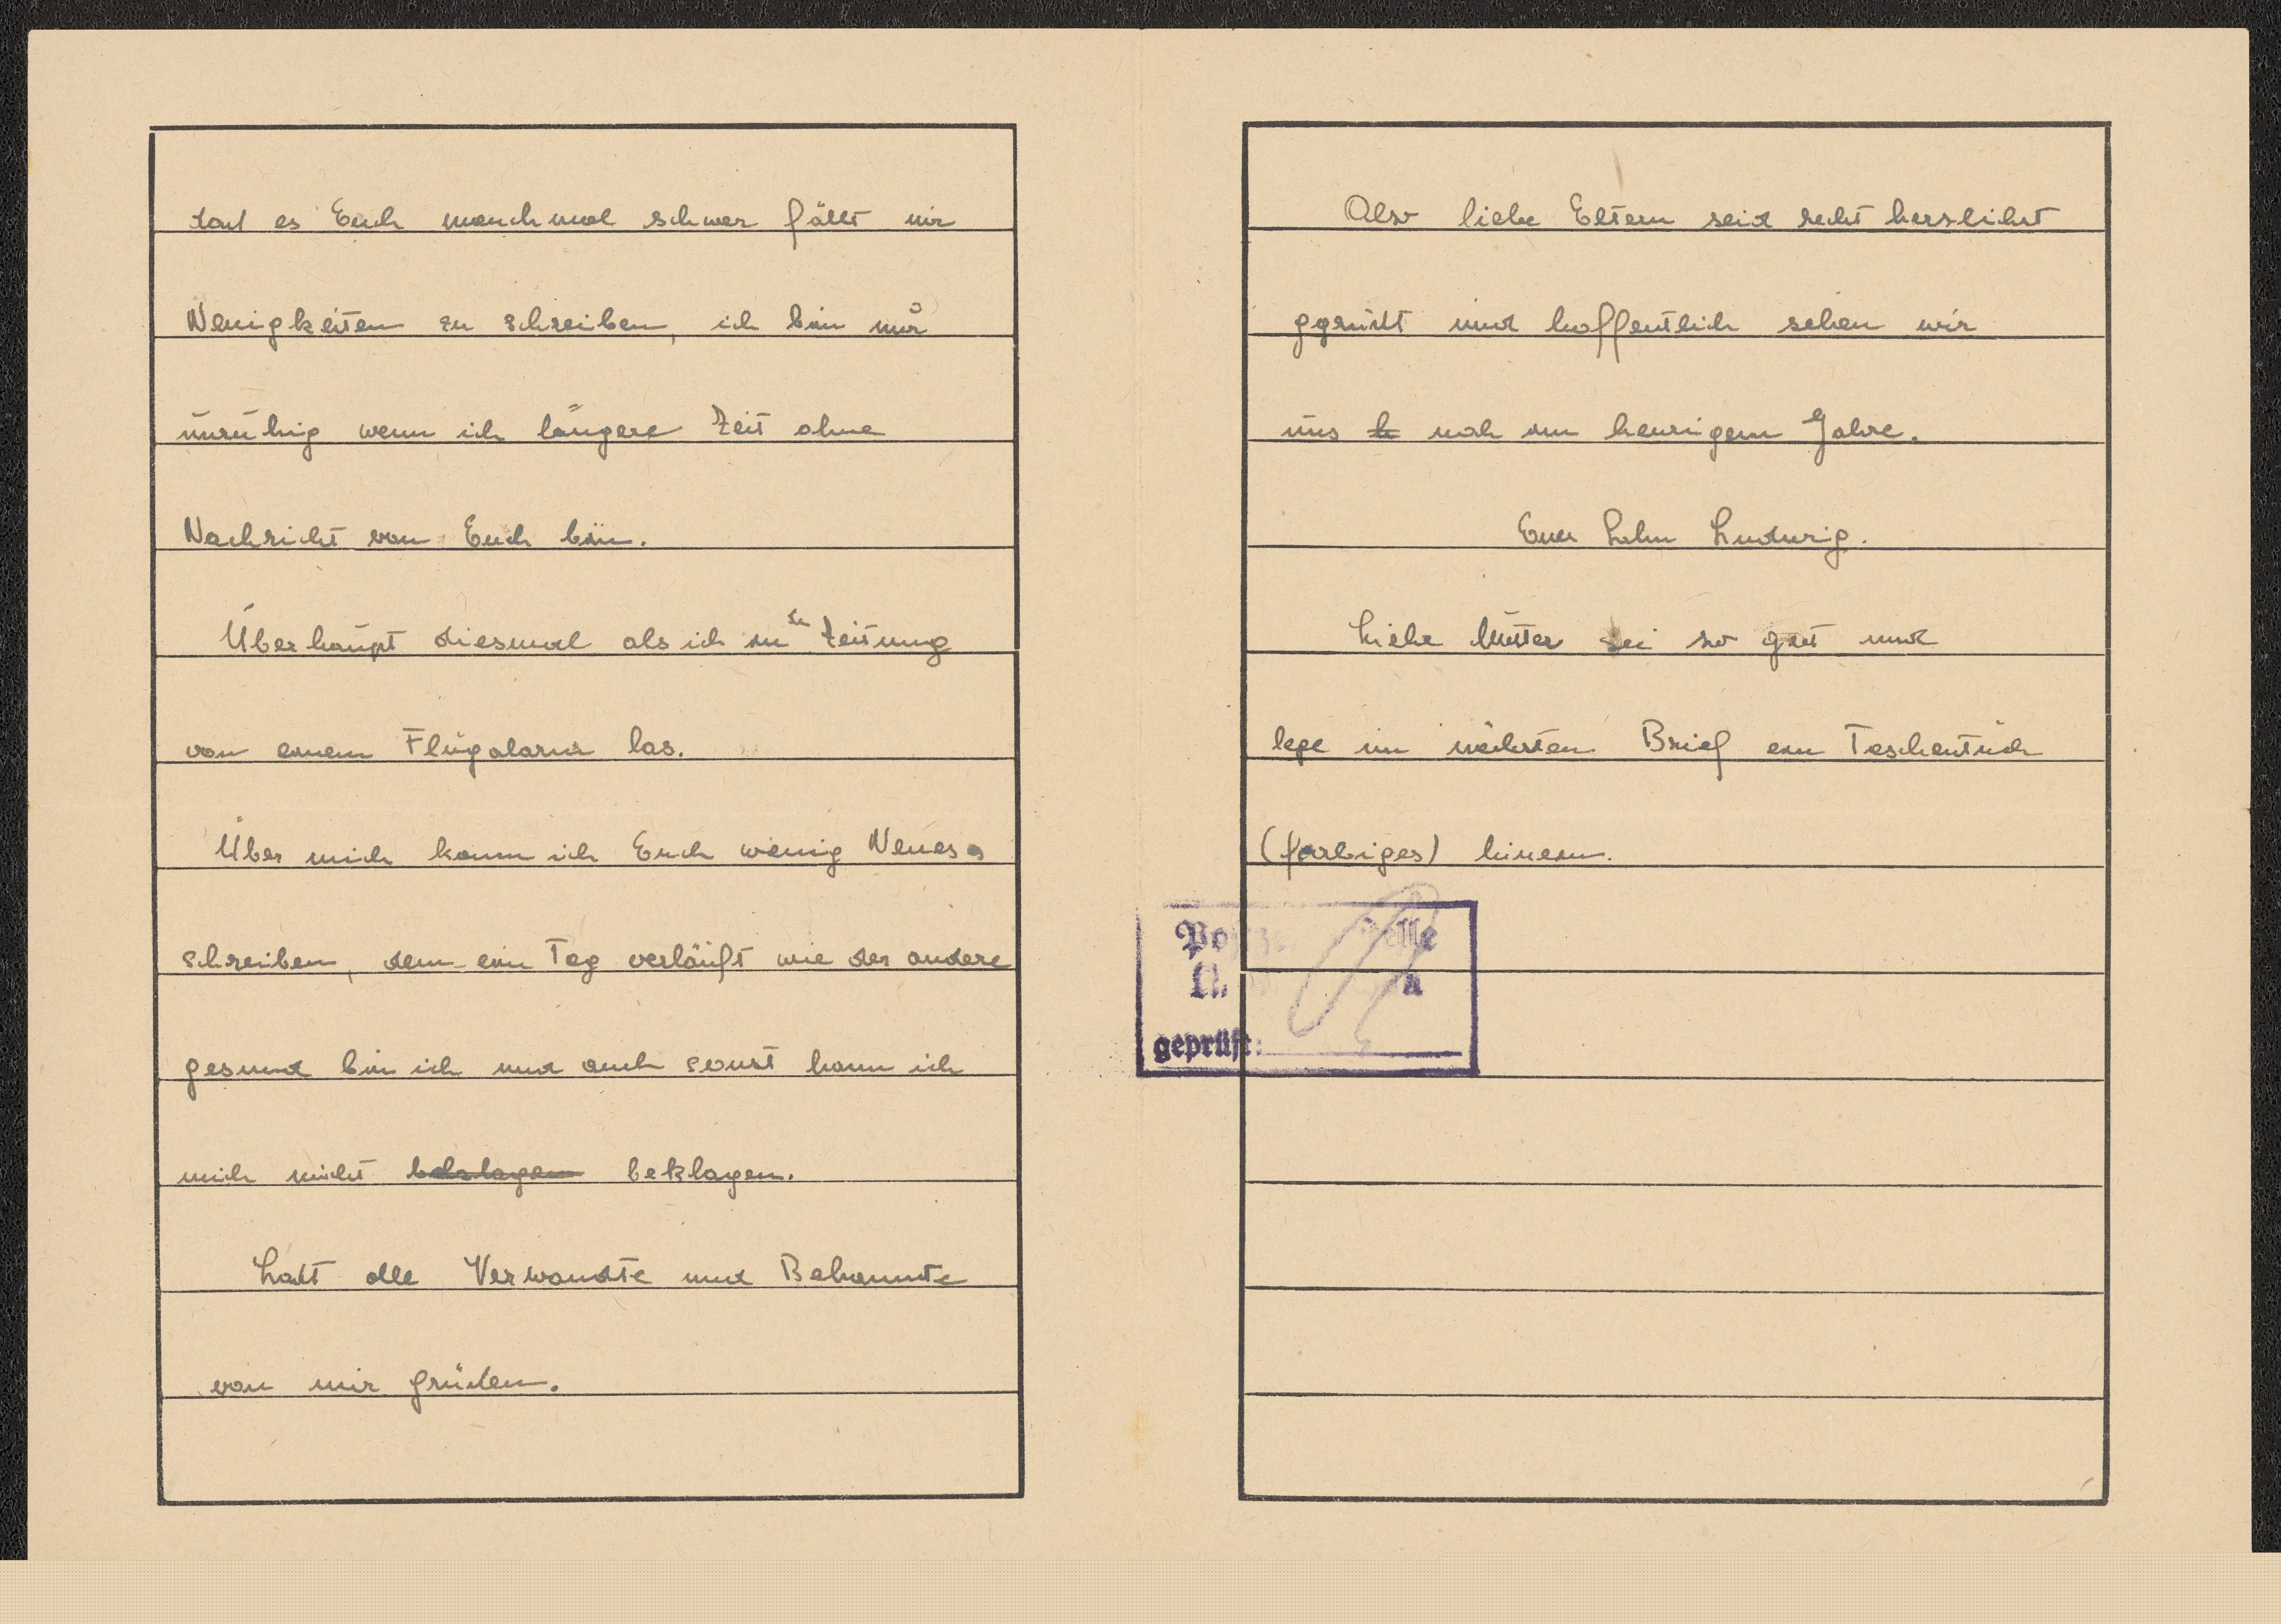 daß es Euch manchmal schwer fällt mir
Neuigkeiten zu schreiben, ich bin nur
unruhig wenn ich längere Zeit ohne
Nachricht von Euch bin.
Überhaupt diesmal als ich in de Zeitung
von einem Flugalarm las.
Über mich kann ich Euch wenig Neues
schreiben, denn ein Tag verläuft wie der andere
gesund bin ich und auch sonst kann ich
mich nicht beklagen.
Laßt alle Verwandte und Bekannte
von mir grüßen.
Also liebe Eltern seid recht herzlichst
gegrüßt und hoffentlich sehen wir
uns noch im heurigem Jahre.
Euer Sohn Ludwig.
Liebe Mutter sei so gut und
lege im nächsten Brief ein Taschentuch
(farbiges) hinein.
geprüft: